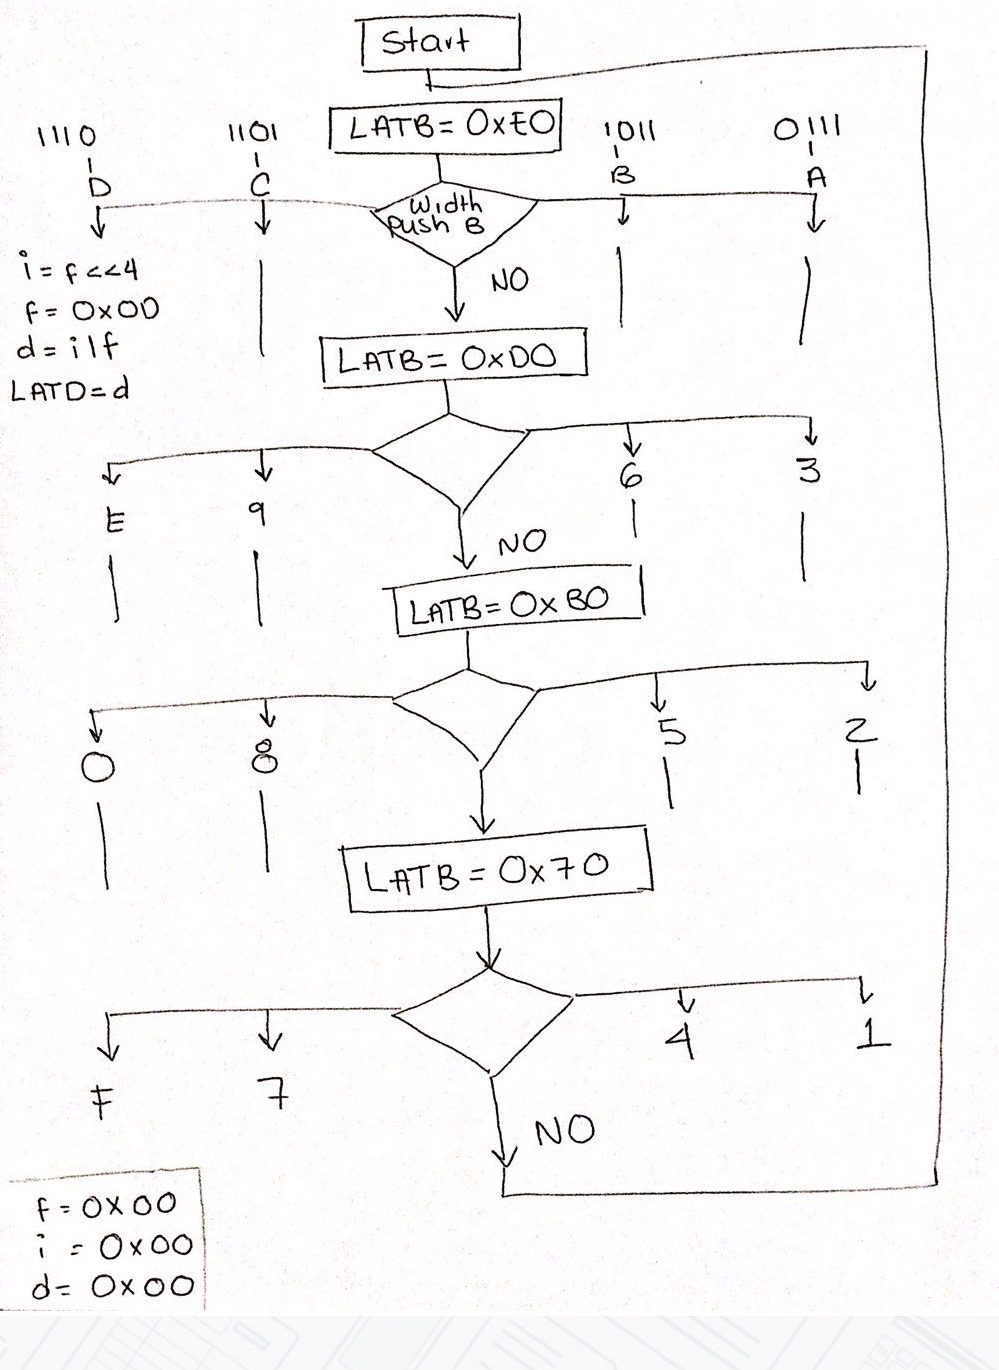 Start
LATB = 0xE0
1110
1101
1011
0111
D
C
B
A
Width
Push B
NO
i = f<<4
f = 0x00
d = i|f
LATD = d
LATB = 0xD0
E
9
6
3
NO
LATB = 0xB0
0
8
5
2
LATB = 0x70
F
7
4
1
NO
f = 0x00
i = 0x00
d = 0x00